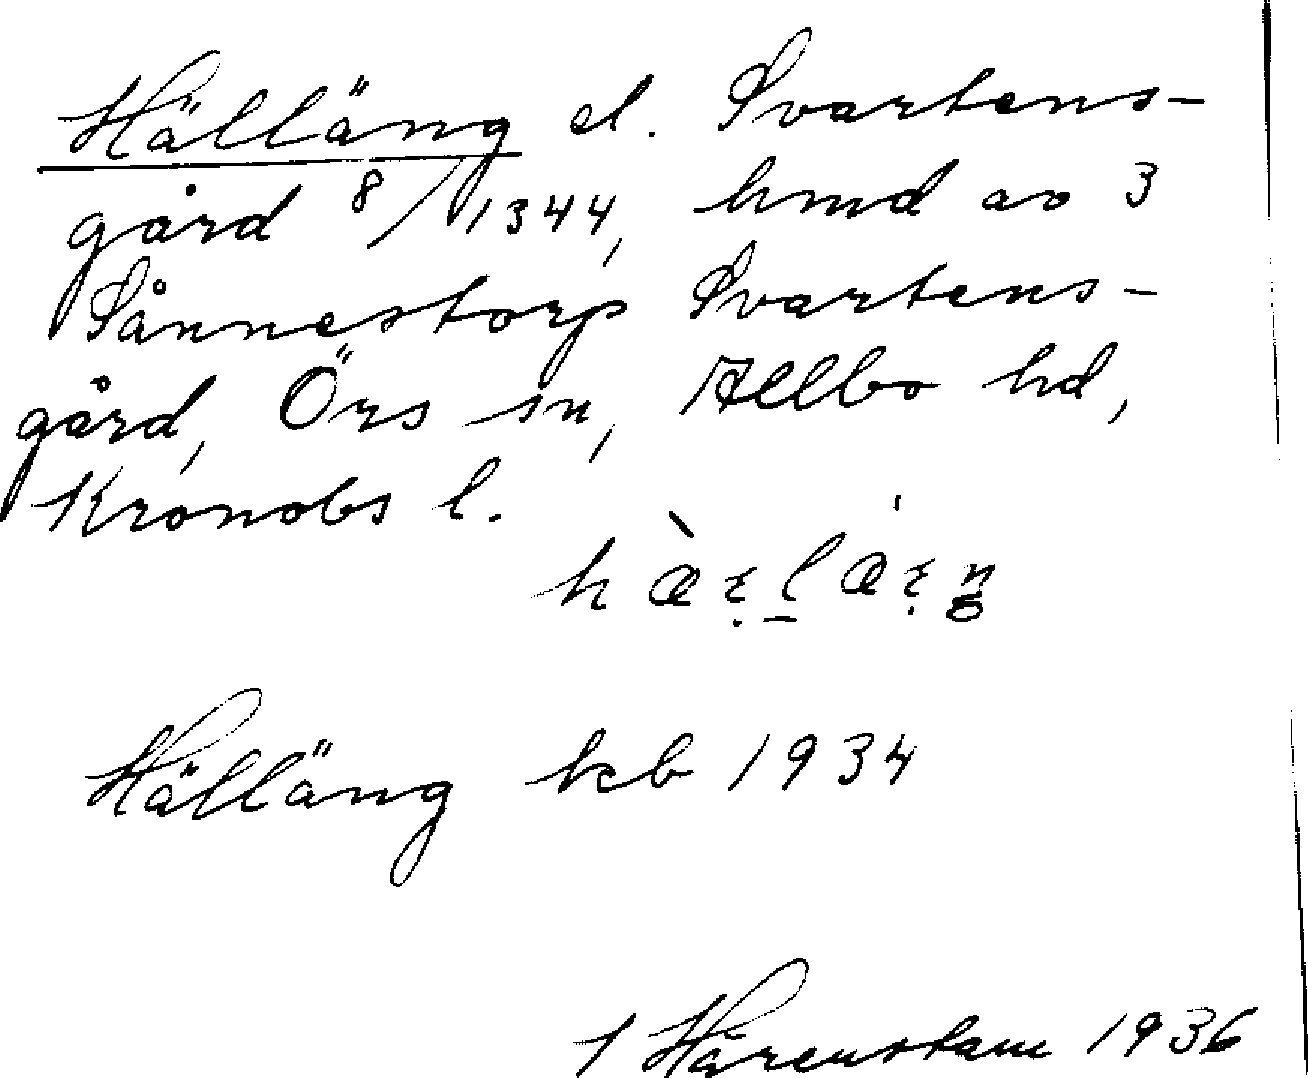 Hälläng el. Svartens-
gård 8/1344, hmd av 3
Sånnestorp Svartens-
gård, Örs sn, Allbo hd,
Kronobs l.
Hälläng kb 1934
1936